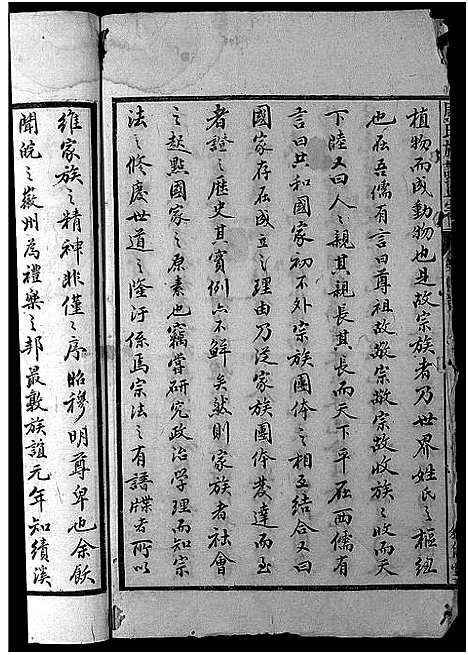 植物而成動物也是故宗族者乃世界姓氏之樞紐
也在吾儒有言曰尊祖故敬宗敬宗故收族之收而天
下睦又曰人人親其親長其長而天下平在西儒有
言曰共和國家初不外宗族團体之相互結合又曰
國家存在成立之理由乃泛家族團体發達而至
者證之歷史其實例亦不鮮矣然則家族者社會
之起點國家之原素也竊嘗研究政治学理而知宗
法之修廢世道之隆汙係焉宗法之有譜牒者所以
維家族之精神非僅之序昭穆明尊卑也余飫
聞皖之徽州為禮樂之邦最敦族誼元年知績溪